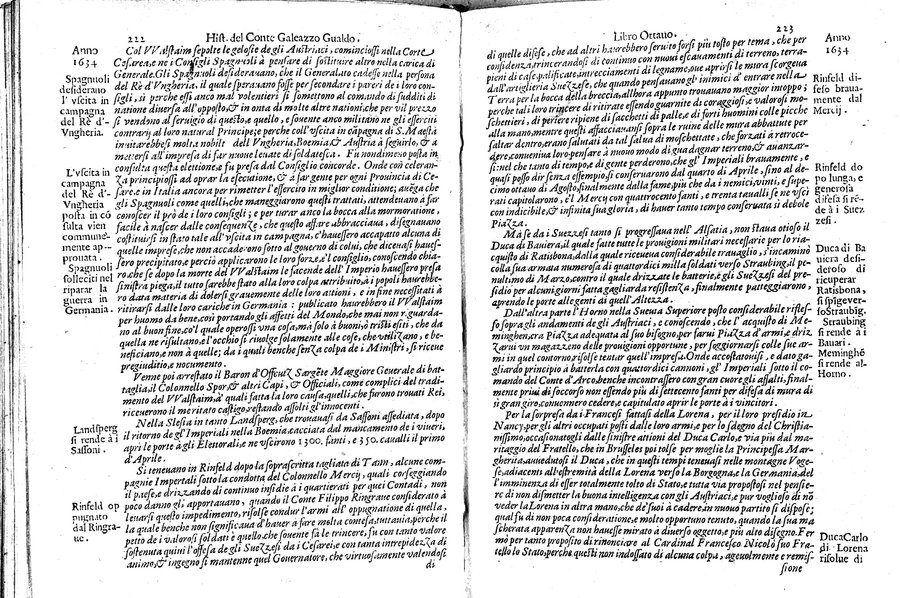 222
Hist. del Conte Galeazzo Gualdo.
Anno
1634
Spagnuoli
desiderano
l' vscita in
campagna
del Rè d'
Vngheria.
L'vscita in
campagna
del Rè d'
Vngheria
posta in cõ
sulta vien
commune-
mente ap-
prouata.
Spagnuoli
solleciti nel
riparar la
guerra in
Germania.
Landsperg
si rende à i
Sassoni.
Rinfeld op
pugnato
dal Ringra-
ue.
Col VValstaim sepolte le gelosie degli Austriaci, cominciossi nella Corte
Cesarea, e ne i Consigli Spagnuoli à pensare di sostituire altro nella carica di
Generale. Gli Spagnuoli desiderauano, che il Generalato cadesse nella persona
del Rè d'Vngheria, il quale speraruano fosse per secondare i pareri de i loro con-
sigli, sì perche essi anco mal volentieri si sometton al comando di sudditi di
natione diuersa all'opposto, & in onta di molte altre nationi, che per vil prezzo
si vendono al seruigio di questo, e quello, e souente anco militano ne gli eserciti
contrarij al loro natural Principe; perche coll'vscita in cãpagna di S. Maestà
inuitarebbesi molta nobiltà dell' Vngheria, Boemia, & Austria à seguirlo, & à
mettersi all'impresa di far nuoue leuate di soldatesca. Fu nondimeno posta in
consulta questa elettione, e fu presa dal Consiglio concorde. Onde con celeran-
za principiossi ad oprar la esecutione, & à far gente per ogni Prouincia di Ce-
sare, e in Italia ancora per rimetter l'essercito in miglior conditione; auẽga che
gli Spagnuoli come quelli, che maneggiorono questi trattati, attendeuano à far
conoscer il prò de i loro consigli; e per turar anco la bocca alla mormoratione,
facile à nascer dalle conseguenze, che questo affare abbracciaua, disegnauano
costituirsi in stato tale all'vscita in campagna, c'hauessero accappato alcuna di
quelle imprese, che non accadendo sotto al gouerno di colui, che diceuasi haues-
sero precipitato, e perciò applicarono le loro forze, e'l consiglio, conoscendo chia-
ro, che se dopo la morte del VValstaim le facende dell' Imperio hauessero presa
sinistra piega, il tutto sarebbesi alla loro colpa attribuito, & i popoli haurebbe-
ro data materia di dolersi grauemente delle loro attioni, e in fine necessitati à
ritirarsi dalle loro cariche in Germania: publicato haurebbero il VValstaim
per huomo da bene, così portando gli affetti del Mondo, che mai non riguarda-
no al buon fine, co'l quale operossi vna cosa, mà solo à buoni, ò tristi esiti, che da
quella ne risultano, e l'occhio si riuolge solamente alle cose, che vtilizano, e be-
neficiano, e non à quelle; da i quali benche senza colpa de i Ministri, si riceue
pregiuditio, e nocumento.
Venne poi arrestato il Baron d'Offcutz Sargẽte Maggiore Generale di bat-
taglia, il Colonnello Spor, & altri Capi, & Officiali, come complici del tradi-
mento del VValstaim, à quali fatta la loro causa, quelli, che furono trouati Rei,
riceuerono il meritato castigo, restando assolti gl'innocenti.
Nella Slesia in tanto Landsperg, che trouauasi da Sassoni assediata, dopo
il ritorno de gl'Imperiali nella Boemia, cacciata dal mancamento de i viueri,
aprì le porte à gli Elettorali, e ne vscirono 1300. fanti, e 350. caualli il primo
d'Aprile.
Si teneuano in Rinfeld dopo la soprascritta tagliata di Tann, alcune com-
pagnie Imperiali sotto la condotta del Colonnello Mercij, quali corseggiando
il paese, e drizzando di continuo insidie à i quartierati per quei Contadi, non
poco danno gli apportauano, quando il Conte Filippo Ringraue considerato à
leuarsi questo impedimento, risolse condur l'armi all' oppugnatione di quella,
la quale benche non significaua d'hauer à fare molta contesa, tuttauia, perche il
petto de i valorosi soldati è quello, che souente fà le trincere, fu con tanto valore
sostenuta quiui l'offesa de gli Suezzesi da i Cesarei, e con tanta intrepidezza di
animo, & ingegno si mantenne quel Gouernatore, che virtuosamente valendosi
di
Libro Ottauo.
223
di quelle difese, che ad altri haurebbero seruito forsi più tosto per tema, che per
confidenza, trincerandosi di continuo con nuoui escauamenti di terreno, terra-
pieni di case, palificate, intrecciamenti di legname, oue aprirsi le mura scorgeua
dall'artiglieria Suezzese, che quando pensauano gl'inimici d' entrare nella
Terra per la bocca della breccia, allhora appunto trouauano maggior intoppo;
che nelle loro trincere di ritirate essendo guarnite di coraggiosi, e valorosi mo-
schettieri, di pertiere ripiene di sacchetti di palle, e di forti huomini colle picche
alla mano, mentre questi affacciauansi sopra le ruine delle mura abbattute per
saltar dentro, erano salutati da tal salua di moschettate, che forzati à retroce-
dere, conueniua loro pensare à nuouo modo di guadagnar terreno, & auanzar-
si; nel che tanto di tempo, e di gente perderono, che gl' Imperiali brauamente, e
quasi posso dir senza essempio, si conseruarono dal quarto di Aprile, sino al de-
cimo ottauo di Agosto, finalmente dalla fame, più che da i nemici, vinti, e supe-
rati capitolarono, e'l Mercij con quattrocento fanti, e trenta caualli se ne vscì
con indicibile, & infinita sua gloria, di hauer tanto tempo conseruata sì debole
Piazza.
Mà se da i Suezzesi tanto si progressaua nell' Alsatia, non staua otioso il
Duca di Bauiera, il quale fatte tutte le prouigioni militari necessarie per lo riac-
quisto di Ratisbona, dalla quale riceueua considerabile trauaglio, s'incaminò
colla sua armata numerosa di quattordici milla soldati verso Straubing, il pe-
nultimo di Marzo, contro il quale drizzate le batterie, e gli Suezzesi del pre-
sidio per alcuni giorni fatta gagliarda resistenza, finalmente patteggiorono,
aprendo le porte alle genti di quell' Altezza.
Dall'altra parte l'Horno nella Sueuia Superiore posto considerabile rifles-
so sopra gli andamenti de gli Austriaci, e conoscendo, che l' acquisto di Me-
minghen, era Piazza adequata al suo bisogno, per farui Piazza d'arme, e driz-
zarui vn magazzeno delle prouigioni opportune, per soggiornarsi colle sue ar-
mi in quel contorno, risolse tentar quell'impresa. Onde accostatouisi, e dato ga-
gliardo principio à batterla con quattordici cannoni, gl' Imperiali sotto il co-
mando del Conte d'Arco, benche incontrassero con gran cuore gli assalti, final-
mente priui di soccorso non essendo più di settecento fanti per difesa di mura di
sì gran giro, conuennero cedere, e capitulato aprir le porte à i vincitori.
Per la sorpresa da i Francesi fattasi della Lorena, per il loro presidio in
Nancy, per gli altri occupati posti dalle loro armi, e per lo sdegno del Christia-
nissimo, occasionatogli dalle sinistre attioni del Duca Carlo, e via più dal ma-
ritaggio del Fratello, che in Brusseles poi tolse per moglie la Principessa Mar-
gherita, auuedutosi il Duca, che in questi tempi teneuasi nelle montagne Voge-
se, adiacenti all'estremità della Lorena verso la Borgogna, e la Germania, del
l'imminenza di esser totalmente tolto di Stato, e tutta via propostosi nel pensie-
re di non dismetter la buona intelligenza con gli Austriaci, e pur voglioso di nõ
veder la Lorena in altra mano, che de' suoi à cadere, in nuouo partito si dispose;
qual fu di non poca consideratione, e molto opportuno tenuto, quando la sua ma
scherata apparenza non hauesse mirato à diuerso oggetto, e più alto disegno. Fer
mò per tanto proposito di rinonciare al Cardinal Francesco Nicolò suo Fra-
tello lo Stato, perche questi non indossato di alcuna colpa, ageuolmente e remis-
sione
Anno
1634
Rinfeld di-
feso braua-
mente dal
Mercij.
Rinfeld do
po lunga, e
generosa
difesa si rẽ-
de à i Suez-
zesi.
Duca di Ba
uiera desi-
deroso di
ricuperar
Ratisbona,
si spige ver-
so Straubig.
Straubing
si rende à i
Bauari.
Meminghẽ
si rende all'
Horno.
Duca Carlo
di Lorena
risolue di